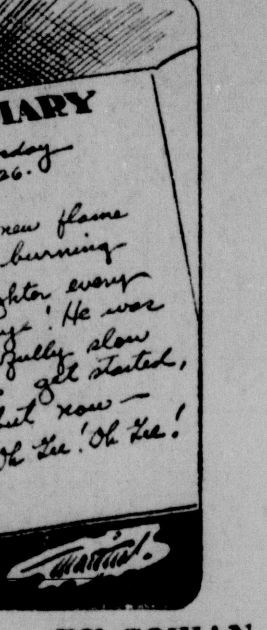 IARY
sday
26.
new flame
burning
ghter every
ys! He was
fully slow
get started,
but now—
Oh Gee! Oh Gee!
Martin